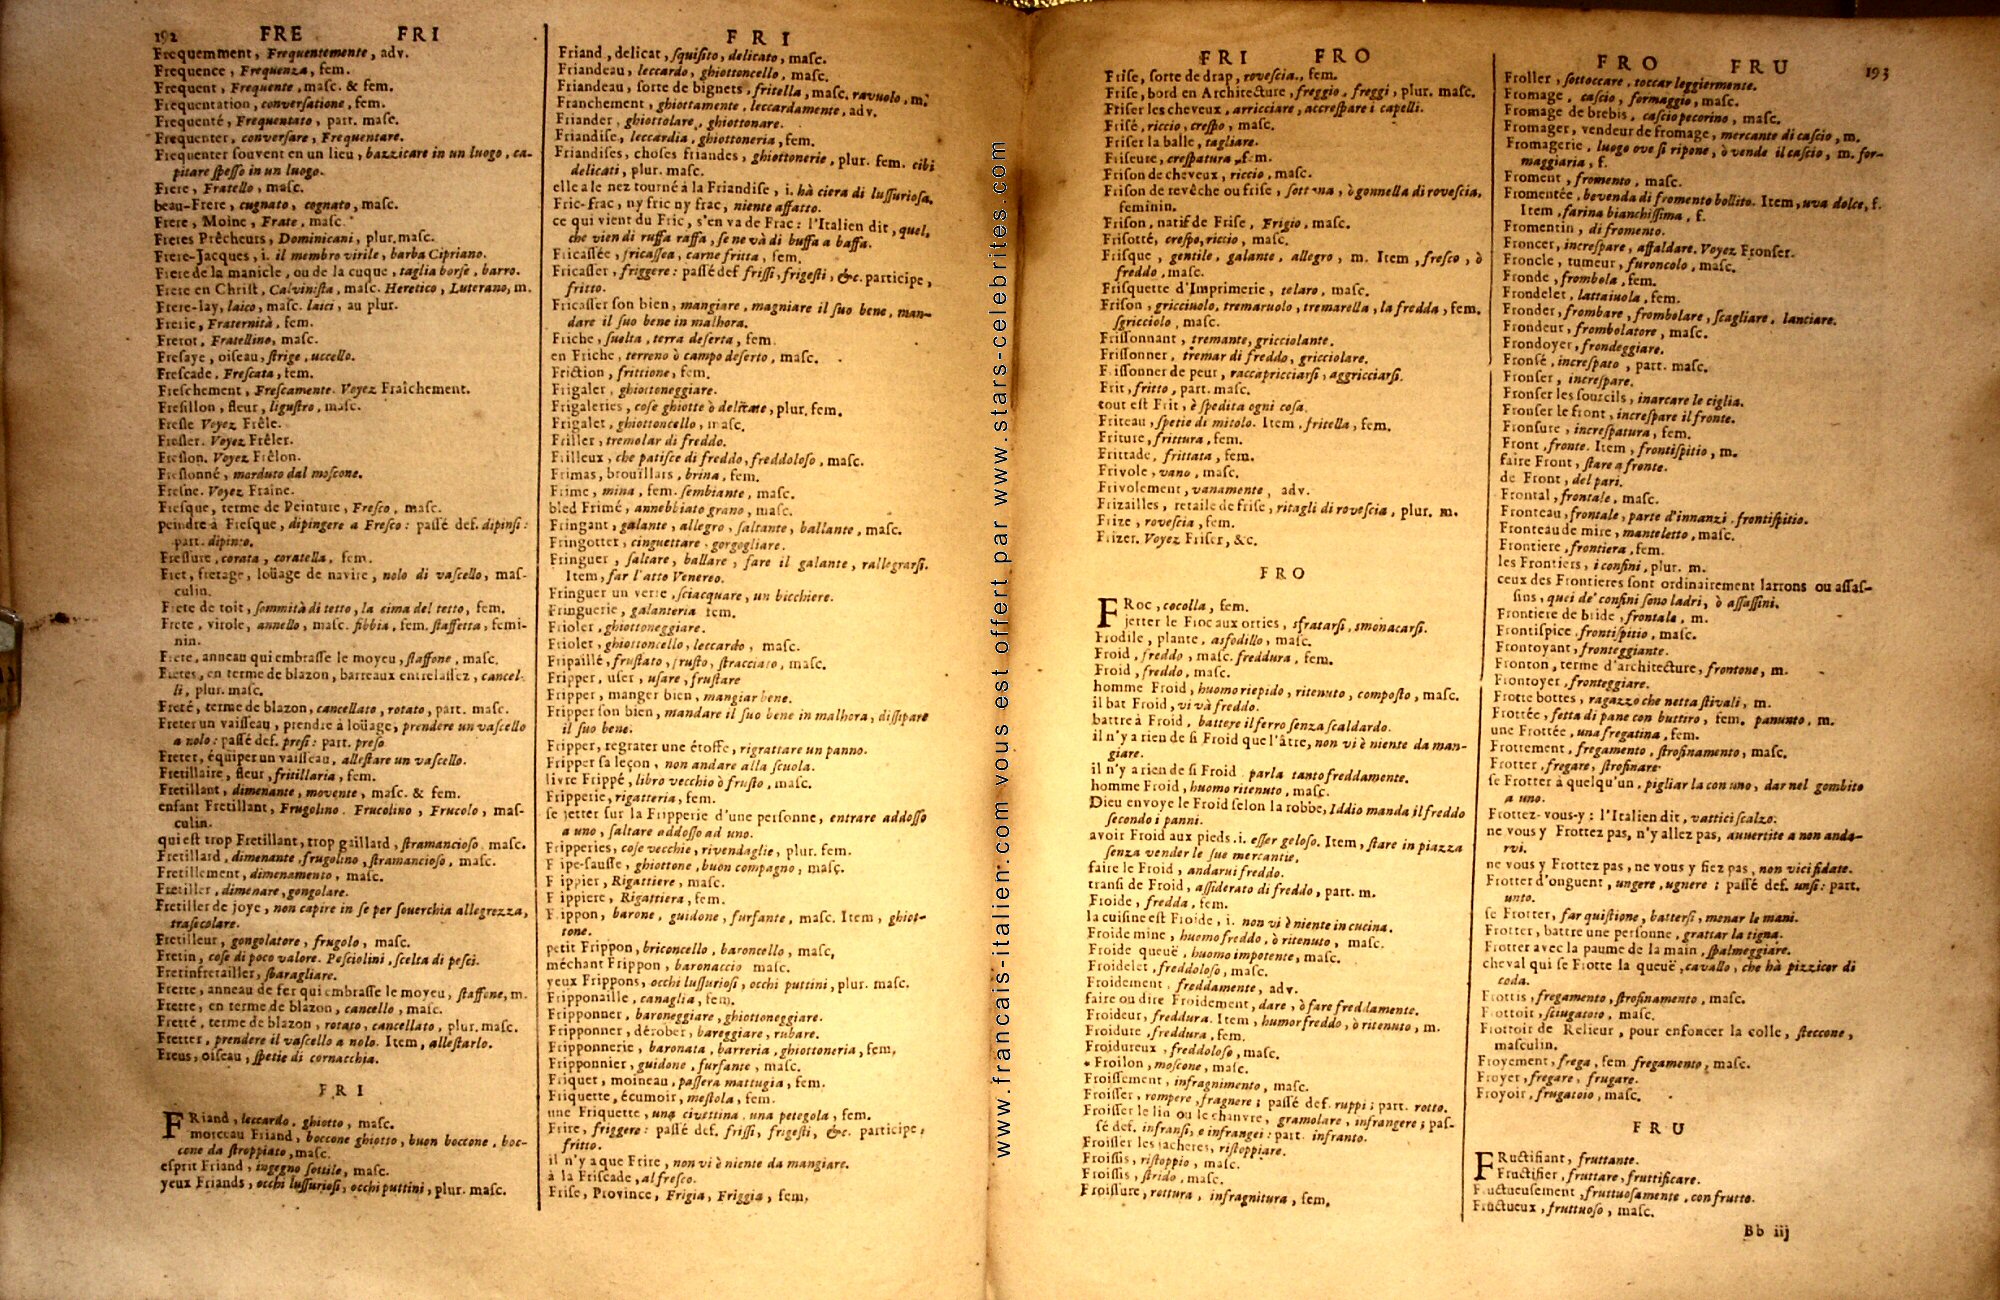 192 FRE FRI
Frequemment, Frequentemente, adv.
Frequence, Frequenza, fem.
Frequent, Frequente, masc. & fem.
Frequentation, conversatione, fem.
Frequenté, Frequentato, part. masc.
Frequenter, conversare, Frequentare.
Frequenter souvent en un lieu, bazzicare in un luogo, ca-
pitare spesso in un luogo.
Frere, Fratello, masc.
beau-Frere, cugnato, cognato, masc.
Frere, Moine, Frate, masc.
Freres Prêcheurs, Dominicani, plur. masc.
Frere-Jacques, i. il membro virile, barba Cipriano.
Frere de la manicle, ou de la cuque, taglia borse, barro.
Frere en Christ, Calvinista, masc. Heretico, Luterano, m.
Frere-lay, laico, masc. laici, au plur.
Frerie, Fraternità, fem.
Frerot, Fratellino, masc.
Fresaye, oiseau, strige, uccello.
Frescade, Frescata, fem.
Freschement, Frescamente. Voyez Fraîchement.
Fresillon, fleur, ligustro, masc.
Fresle Voyez Frêle.
Fresler. Voyez Frêler.
Freslon. Voyez Frêlon.
Freslonné, morduto dal moscone.
Fresne. Voyez Fraine.
Fresque, terme de Peinture, Fresco, masc.
peindre à Fresque, dipingere a Fresco: passé def. dipinsi:
part. dipinto.
Fressure, corata, coratella, fem.
Fret, fretage, loüage de navire, nolo di vascello, mas-
culin.
Frete de toit, sommità di tetto, la cima del tetto, fem.
Frete, virole, annello, masc. fibbia, fem. staffetta, femi-
nin.
Frete, anneau qui embrasse le moyeu, staffone, masc.
Fretes, en terme de blazon, barreaux entrelassez, cancel-
li, plur. masc.
Freté, terme de blazon, cancellato, rotato, part. masc.
Freter un vaisseau, prendre à loüage, prendere un vascello
a nolo: passé def. presi: part. preso
Freter, équiper un vaisseau, allestare un vascello.
Fretillaire, fleur, fritillaria, fem.
Fretillant, dimenante, movente, masc. & fem.
enfant Fretillant, Frugolino. Frucolino, Frucolo, mas-
culin.
qui est trop Fretillant, trop gaillard, stramancioso masc.
Fretillard, dimenante, frugolino, stramancioso, masc.
Fretillement, dimenamento, masc.
Fretiller, dimenare, gongolare.
Fretiller de joye, non capire in se per soverchia allegrezza,
trasecolare.
Fretilleur, gongolatore, frugolo, masc.
Fretin, cose di poco valore. Pesciolini, scelta di pesci.
Fretinfretailler, sbaragliare.
Frette, anneau de fer qui embrasse le moyeu, staffone, m.
Frette, en terme de blazon, cancello, masc.
Fretté, terme de blazon, rotato, cancellato, plur. masc.
Fretter, prendere il vascello a nolo. Item, allestarlo.
Freus, oiseau, spetie di cornacchia.
FRI
FRiand, leccardo, ghiotto, masc.
morceau Friand, boccone ghiotto, buon boccone, boc-
cone da stroppiato, masc.
esprit Friand, ingegno sottile, masc.
yeux Friands, occhi lussuriosi, occhi puttini, plur. masc.
FRI
Friand, delicat, squisito, delicato, masc.
Friandeau, leccardo, ghiottoncello, masc.
Friandeau, sorte de bignets, fritella, masc. ravuolo, m.
Franchement, ghiottamente, leccardamente, adv.
Friander, ghiottolare, ghiottonare.
Friandise, leccardia, ghiottoneria, fem.
Friandises, choses friandes, ghiottonerie, plur. fem. cibi
delicati, plur. masc.
elle a le nez tourné à la Friandise, i. hà ciera di lussuriosa.
Fric-frac, ny fric ny frac, niente affatto.
ce qui vient du Fric, s'en va de Frac: l'Italien dit, quel,
che vien di ruffa raffa, se ne và di buffa a baffa.
Fricassée, fricassea, carne fritta, fem.
Fricasser, friggere: passé def frissi, frigesti, &c. participe,
fritto.
Fricasser son bien, mangiare, magniare il suo bene, man-
dare il suo bene in malhora.
Friche, suelta, terra deserta, fem.
en Friche, terreno ò campo deserto, masc.
Friction, frittione, fem.
Frigaler, ghiottoneggiare.
Frigaleries, cose ghiotte ò delicate, plur. fem.
Frigalet, ghiottoncello, masc.
Friller, tremolar di freddo.
Frilleux, che patisce di freddo, freddoloso, masc.
Frimas, brouïllars, brina, fem.
Frime, mina, fem. sembiante, masc.
bled Frimé, annebbiato grano, masc.
Fringant, galante, allegro, saltante, ballante, masc.
Fringotter, cinguettare. gorgogliare.
Fringuer, saltare, ballare, fare il galante, rallegrarsi.
Item, far l'atto Venereo.
Fringuer un verre, sciacquare, un bicchiere.
Fringuerie, galanteria fem.
Frioler, ghiottoneggiare.
Friolet, ghiottoncello, leccardo, masc.
Fripaillé, frustato, frusto, stracciato, masc.
Fripper, user, usare, frustare
Fripper, manger bien, mangiar bene.
Fripper son bien, mandare il suo bene in malhora, dissipare
il suo bene.
Fripper, regrater une étoffe, rigrattare un panno.
Fripper sa leçon, non andare alla scuola.
livre Frippé, libro vecchio ò frusto, masc.
Fripperie, rigatteria, fem.
se jetter sur la Fripperie d'une personne, entrare addosso
a uno, saltare addosso ad uno.
Fripperies, cose vecchie, rivendaglie, plur. fem.
Fripe-sausse, ghiottone, buon compagno, masc.
Frippier, Rigattiere, masc.
Frippiere, Rigattiera, fem.
Frippon, barone, guidone, furfante, masc. Item, ghiot-
tone.
petit Frippon, briconcello, baroncello, masc,
méchant Frippon, baronaccio masc.
yeux Frippons, occhi lussuriosi, occhi puttini, plur. masc.
Fripponaille, canaglia, fem.
Fripponner, baroneggiare, ghiottoneggiare.
Fripponner, dérober, bareggiare, rubare.
Fripponnerie, baronata, barreria, ghiottoneria, fem,
Fripponnier, guidone, furfante, masc.
Friquet, moineau, passera mattugia, fem.
Friquette, écumoir, mestola, fem.
une Friquette, una civettina, una petegola, fem.
Frire, friggere: passé def. frissi, frigesti, &c. participe,
fritto.
il n'y a que Frire, non vi è niente da mangiare.
à la Friscade, al fresco.
Frise, Province, Frigia, Friggia, fem.
www.francais-italien.com vous est offert par www.stars-celebrites.com
FRI FRO
Frise, sorte de drap, rovescia, fem.
Frise, bord en Architecture, freggio, freggi, plur. masc.
Friser les cheveux, arricciare, accrespare i capelli.
Frisé, riccio, crespo, masc.
Friser la balle, tagliare.
Friseure, crespatura, fem.
Frison de cheveux, riccio, masc.
Frison de revêche ou frise, sottana, ò gonnella di rovescia,
feminin.
Frison, natif de Frise, Frigio, masc.
Frisotté, crespo, riccio, masc.
Frisque, gentile, galante, allegro, m. Item, fresco, ò
freddo, masc.
Frisquette d'Imprimerie, telaro, masc.
Frison, gricciuolo, tremaruolo, tremarella, la fredda, fem.
sgricciolo, masc.
Frissonnant, tremante, gricciolante.
Frissonner, tremar di freddo, gricciolare.
Frissonner de peur, raccapricciarsi, aggricciarsi.
Frit, fritto, part. masc.
tout est Frit, è spedita ogni cosa.
Friteau, spetie di mitolo. Item, fritella, fem.
Friture, frittura, fem.
Frittade, frittata, fem.
Frivole, vano, masc.
Frivolement, vanamente, adv.
Frizailles, retaile de frise, ritagli di rovescia, plur. m.
Frize, rovescia, fem.
Frizer. Voyez Friser, &c.
FRO
FRoc, cocolla, fem.
jetter le Froc aux orties, sfratarsi, smonacarsi.
Frodile, plante, asfodillo, masc.
Froid, freddo, masc. freddura, fem.
Froid, freddo, masc.
homme Froid, huomo riepido, ritenuto, composto, masc.
il bat Froid, vi và freddo.
battre à Froid, battere il ferro senza scaldardo.
il n'y a rien de si Froid que l'âtre, non vi è niente da man-
giare.
il n'y a rien de si Froid, parla tanto freddamente.
homme Froid, huomo ritenuto, masc.
Dieu envoye le Froid selon la robbe, Iddio manda il freddo
secondo i panni.
avoir Froid aux pieds. i. esser geloso. Item, stare in piazza
senza vender le sue mercantie.
faire le Froid, andarui freddo.
transi de Froid, assiderato di freddo, part. m.
Froide, fredda, fem.
la cuisine est Froide, i. non vi è niente in cucina.
Froide mine, huomo freddo, ò ritenuto, masc.
Froide queuë, huomo impotente, masc.
Froidelet, freddoloso, masc.
Froidement, freddamente, adv.
faire ou dire Froidement, dare, ò fare freddamente.
Froideur, freddura. Item, humor freddo, ò ritenuto, m.
Froidure, freddura, fem.
Froidureux, freddoloso, masc.
Froilon, moscone, masc.
Froissement, infragnimento, masc.
Froisser, rompere, fragnere; passé def. ruppi; part. rotto.
Froisser le lin ou le chanvre, gramolare, infrangere; pas-
sé def. infransi, e infrangei: part. infranto.
Froisser les jacheres, ristoppiare.
Froissis, ristoppio, masc.
Froissis, strido, masc.
Froissure, rottura, infragnitura, fem.
FRO FRU 193
Froller, sottoccare, toccar leggiermente.
Fromage, cascio, formaggio, masc.
Fromage de brebis, cascio pecorino, masc.
Fromager, vendeur de fromage, mercante di cascio, m.
Fromagerie, luogo ove si ripone, ò vende il cascio, m. for-
maggiaria, f.
Froment, fromento, masc.
Fromentée, bevenda di fromento bollito. Item, uva dolce, f.
Item, farina bianchissima, f.
Fromentin, di fromento.
Froncer, increspare, affaldare. Voyez Fronser.
Froncle, tumeur, furoncolo, masc.
Fronde, frombola, fem.
Frondelet, lattaiuola, fem.
Fronder, frombare, frombolare, scagliare, lanciare.
Frondeur, frombolatore, masc.
Frondoyer, frondeggiare.
Fronsé, increspato, part. masc.
Fronser, increspare.
Fronser les sourcils, inarcare le ciglia.
Fronser le front, increspare il fronte.
Fronsure, increspatura, fem.
Front, fronte. Item, frontispitio, m.
faire Front, stare a fronte.
de Front, del pari.
Frontal, frontale, masc.
Fronteau, frontale, parte d'innanzi, frontispitio.
Fronteau de mire, manteletto, masc.
Frontiere, frontiera, fem.
les Frontiers, i confini, plur. m.
ceux des Frontieres sont ordinairement larrons ou assas-
sins, quei de' confini sono ladri, ò assassini.
Frontiere de bride, frontale, m.
Frontispice, frontispitio, masc.
Frontoyant, fronteggiante.
Fronton, terme d'architecture, frontone, m.
Frontoyer, fronteggiare.
Frotte bottes, ragazzo che netta stivali, m.
Frottée, fetta di pane con buttiro, fem. panunto, m.
une Frottée, una fregatina, fem.
Frottement, fregamento, strofinamento, masc.
Frotter, fregare, strofinare.
se Frotter à quelqu'un, pigliar la con uno, dar nel gombito
a uno.
Frottez-vous-y: l'Italien dit, vattici scalzo:
ne vous y Frottez pas, n'y allez pas, auuertite a non anda-
rvi.
ne vous y Frottez pas, ne vous y fiez pas, non vicifidate.
Frotter d'onguent, ungere, ugnere; passé def. unsi: part.
unto.
se Frotter, far quistione, battersi, menar le mani.
Frotter, battre une personne, grattar la tigna.
Frotter avec la paume de la main, spalmeggiare.
cheval qui se Frotte la queuë, cavallo, che hà pizzicor di
coda.
Frottis, fregamento, strofinamento, masc.
Frottoir, sciugatoio, masc.
Frottoir de Relieur, pour enfoncer la colle, steccone,
masculin.
Froyement, frega, fem fregamento, masc.
Froyer, fregare, frugare.
Froyoir, frugatoio, masc.
FRU
FRuctifiant, fruttante.
Fructifier, fruttare, fruttificare.
Fructueusement, fruttuosamente, con frutto.
Fructueux, fruttuoso, masc.
Bb iij